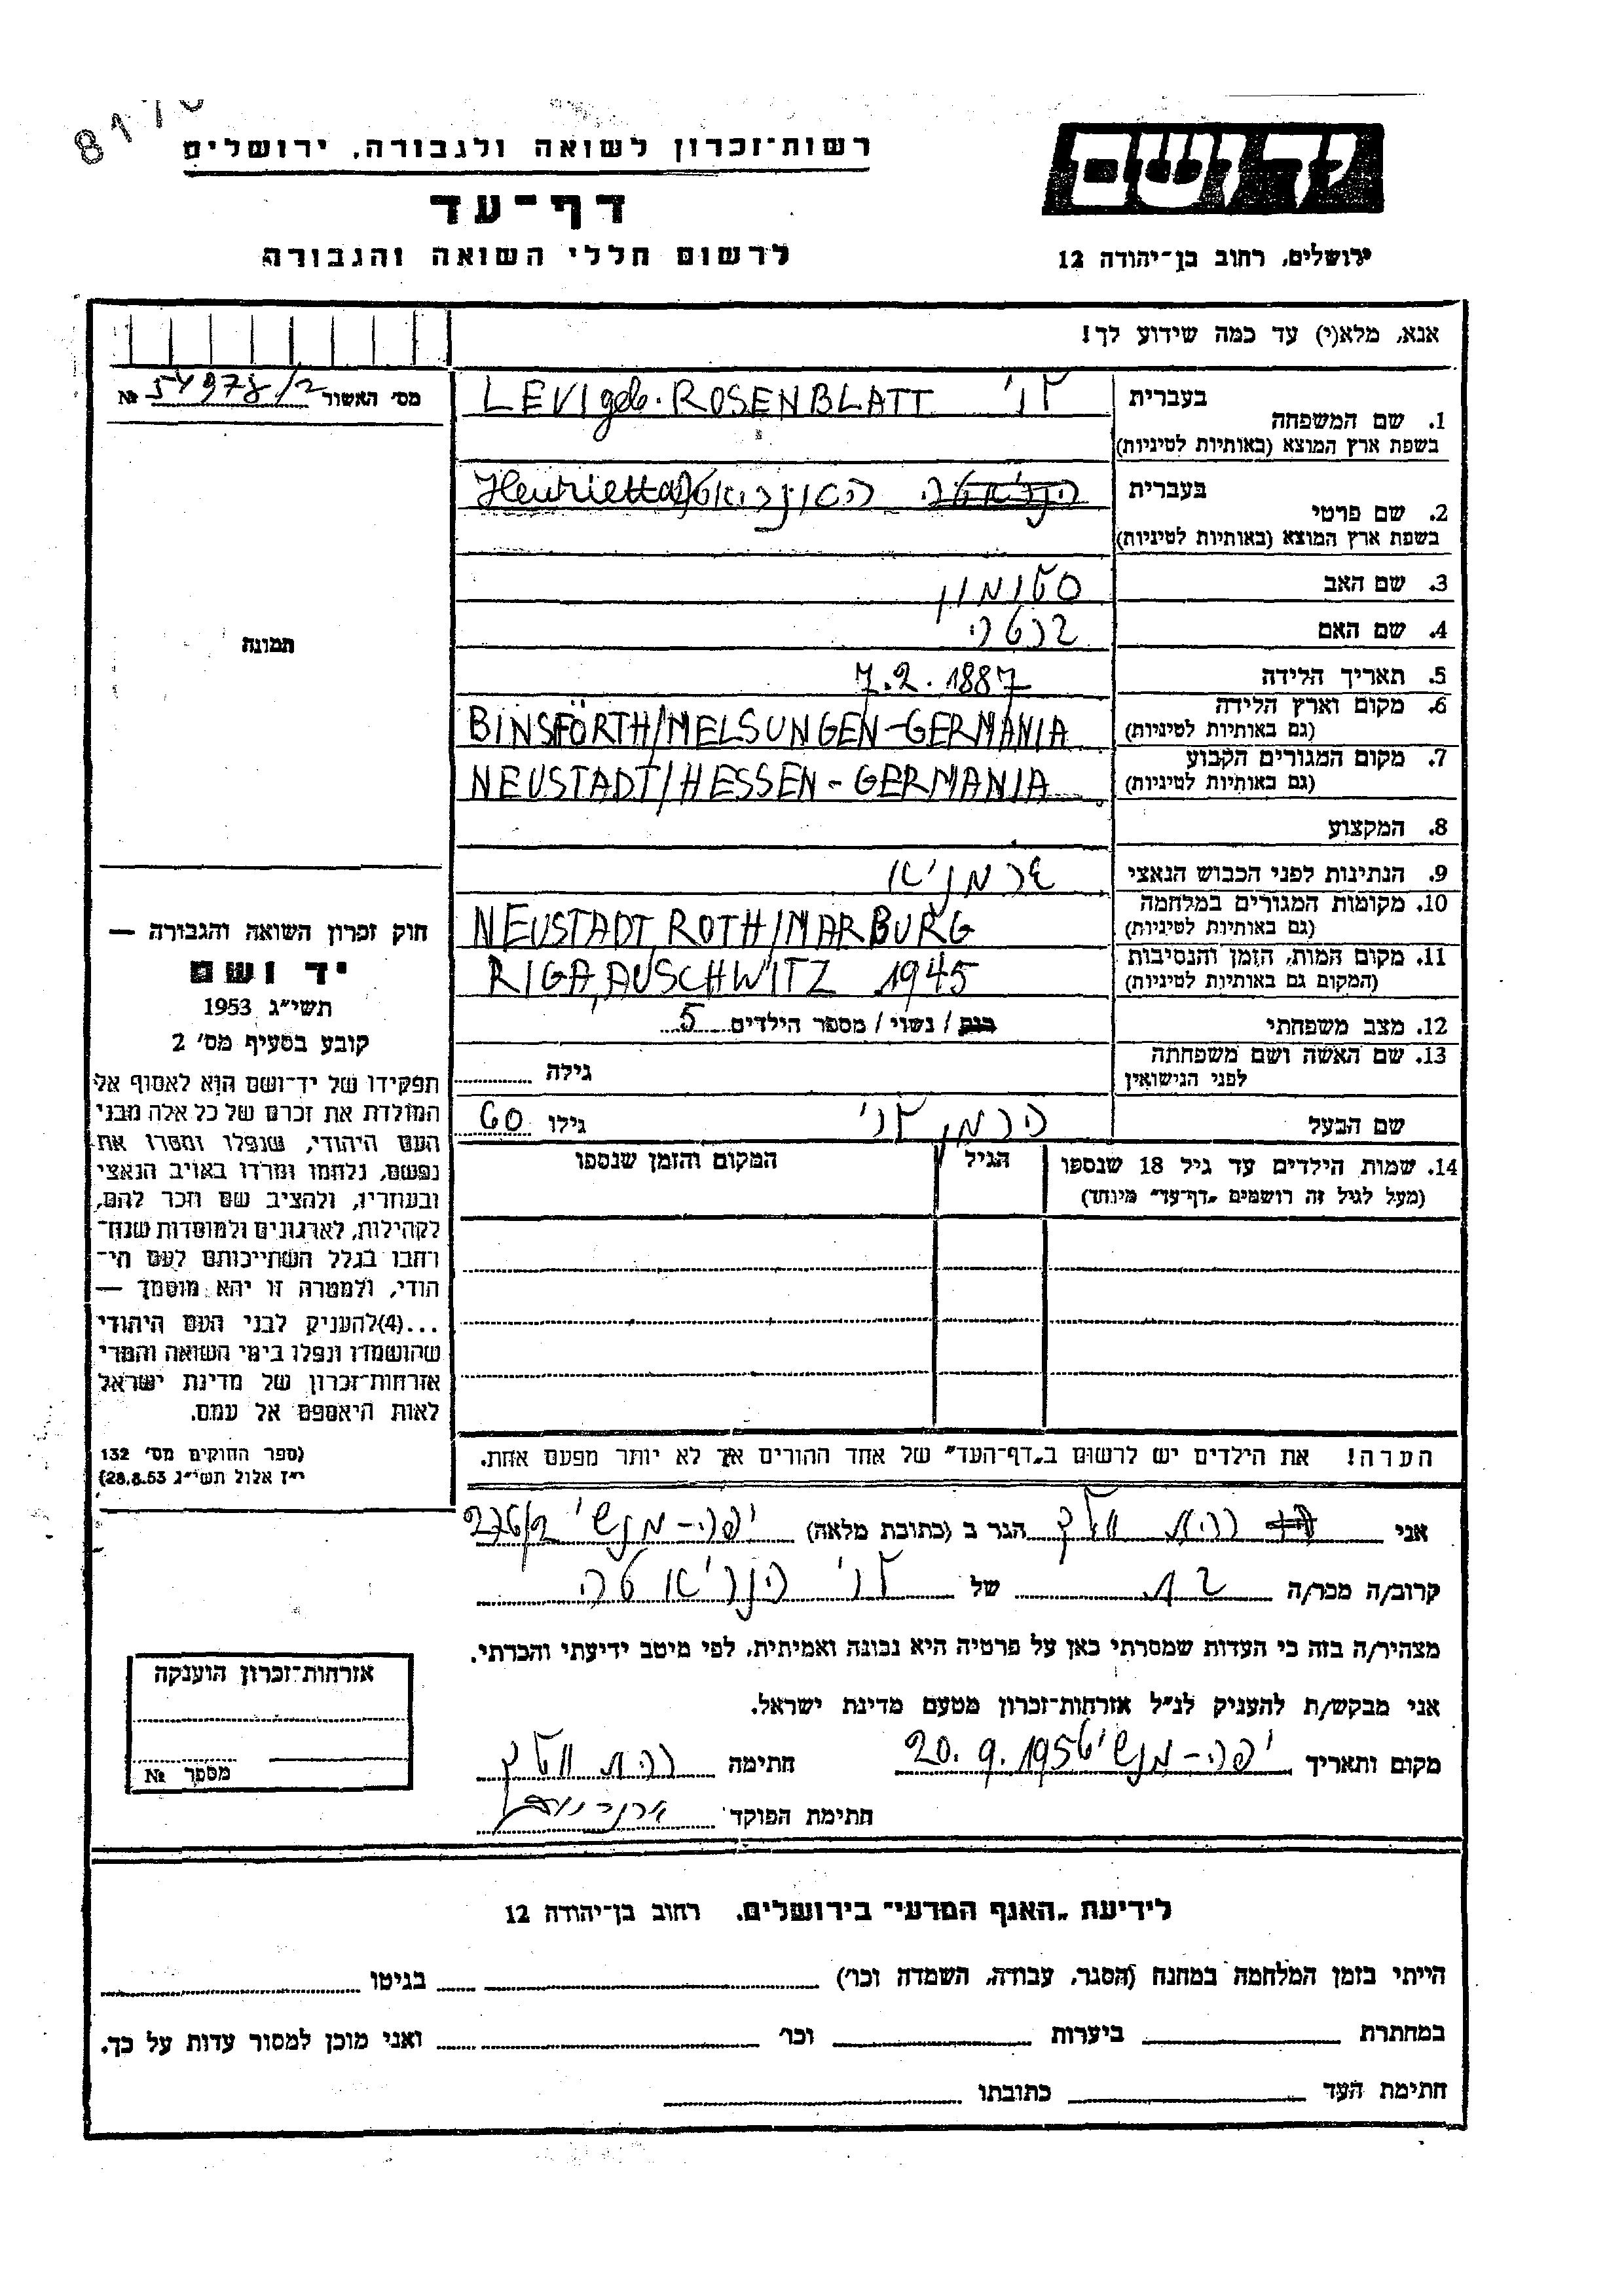 רשות־זכרון לשואה ולגבורה, ירושלים
דף־עד
לרשום חללי השואה והגבורה
יד ושם
ירושלים, רחוב בן־יהודה 12
אנא, מלא(י) עד כמה שידוע לך!
מס' האשור № 54978/2
תמונה
1. שם המשפחה
בעברית
לוי LEVI geb. ROSENBLATT
בשפת ארץ המוצא (באותיות לטיניות)
2. שם פרטי
בעברית
Henrietta
בשפת ארץ המוצא (באותיות לטיניות)
3. שם האב סלומון
4. שם האם ברטה
5. תאריך הלידה 7.2.1887
6. מקום וארץ הלידה
(גם באותיות לטיניות)
BINSFÖRTH/MELSUNGEN-GERMANIA
7. מקום המגורים הקבוע
(גם באותיות לטיניות)
NEUSTADT/HESSEN-GERMANIA
8. המקצוע
9. הנתינות לפני הכבוש הנאצי גרמניא
10. מקומות המגורים במלחמה
(גם באותיות לטיניות)
NEUSTADT, ROTH/MARBURG
11. מקום המות, הזמן והנסיבות
(המקום גם באותיות לטיניות)
RIGA, AUSCHWITZ 1945
12. מצב משפחתי רווק / נשוי / מספר הילדים 5
13. שם האשה ושם משפחתה
לפני הנישואין
גילה
שם הבעל הרמן לוי גילו 60
14. שמות הילדים עד גיל 18 שנספו
(מעל לגיל זה רושמים "דף־עד" מיוחד)
הגיל
המקום והזמן שנספו
הערה! את הילדים יש לרשום ב"דף־העד" של אחד ההורים אך לא יותר מפעם אחת.
חוק זכרון השואה והגבורה —
יד ושם
תשי"ג 1953
קובע בסעיף מס' 2
תפקידו של יד־ושם הוא לאסוף אל
המולדת את זכרם של כל אלה מבני
העם היהודי, שנפלו ומסרו את
נפשם, נלחמו ומרדו באויב הנאצי
ובעוזריו, ולהציב שם וזכר להם,
לקהילות, לארגונים ולמוסדות שנח־
רחבו בגלל השתייכותם לעם הי־
הודי, ולמטרה זו יהא מוסמך —
...(4)להעניק לבני העם היהודי
שהושמדו ונפלו בימי השואה והמרי
אזרחות־זכרון של מדינת ישראל
לאות היאספם אל עמם.
(ספר החוקים מס' 132
י"ז אלול תשי"ג 28.8.53)
אני רות וולף הגר ב (כתובת מלאה) יפה-מנשי 276/2
קרוב/ה מכר/ה בת של לוי הנריאטה
מצהיר/ה בזה כי העדות שמסרתי כאן על פרטיה היא נכונה ואמיתית, לפי מיטב ידיעתי והכרתי.
אני מבקש/ת להעניק לנ"ל אזרחות־זכרון מטעם מדינת ישראל.
מקום ותאריך יפה-מנשי 20.9.1956 חתימה רות וולף
חתימת הפוקד
אזרחות־זכרון הוענקה
מספר №
לידיעת "האגף המדעי" בירושלים, רחוב בן־יהודה 12
הייתי בזמן המלחמה במחנה (הסגר, עבודה, השמדה וכו') בגיטו
במחתרת ביערות וכו' ואני מוכן למסור עדות על כך.
חתימת העד כתובתו